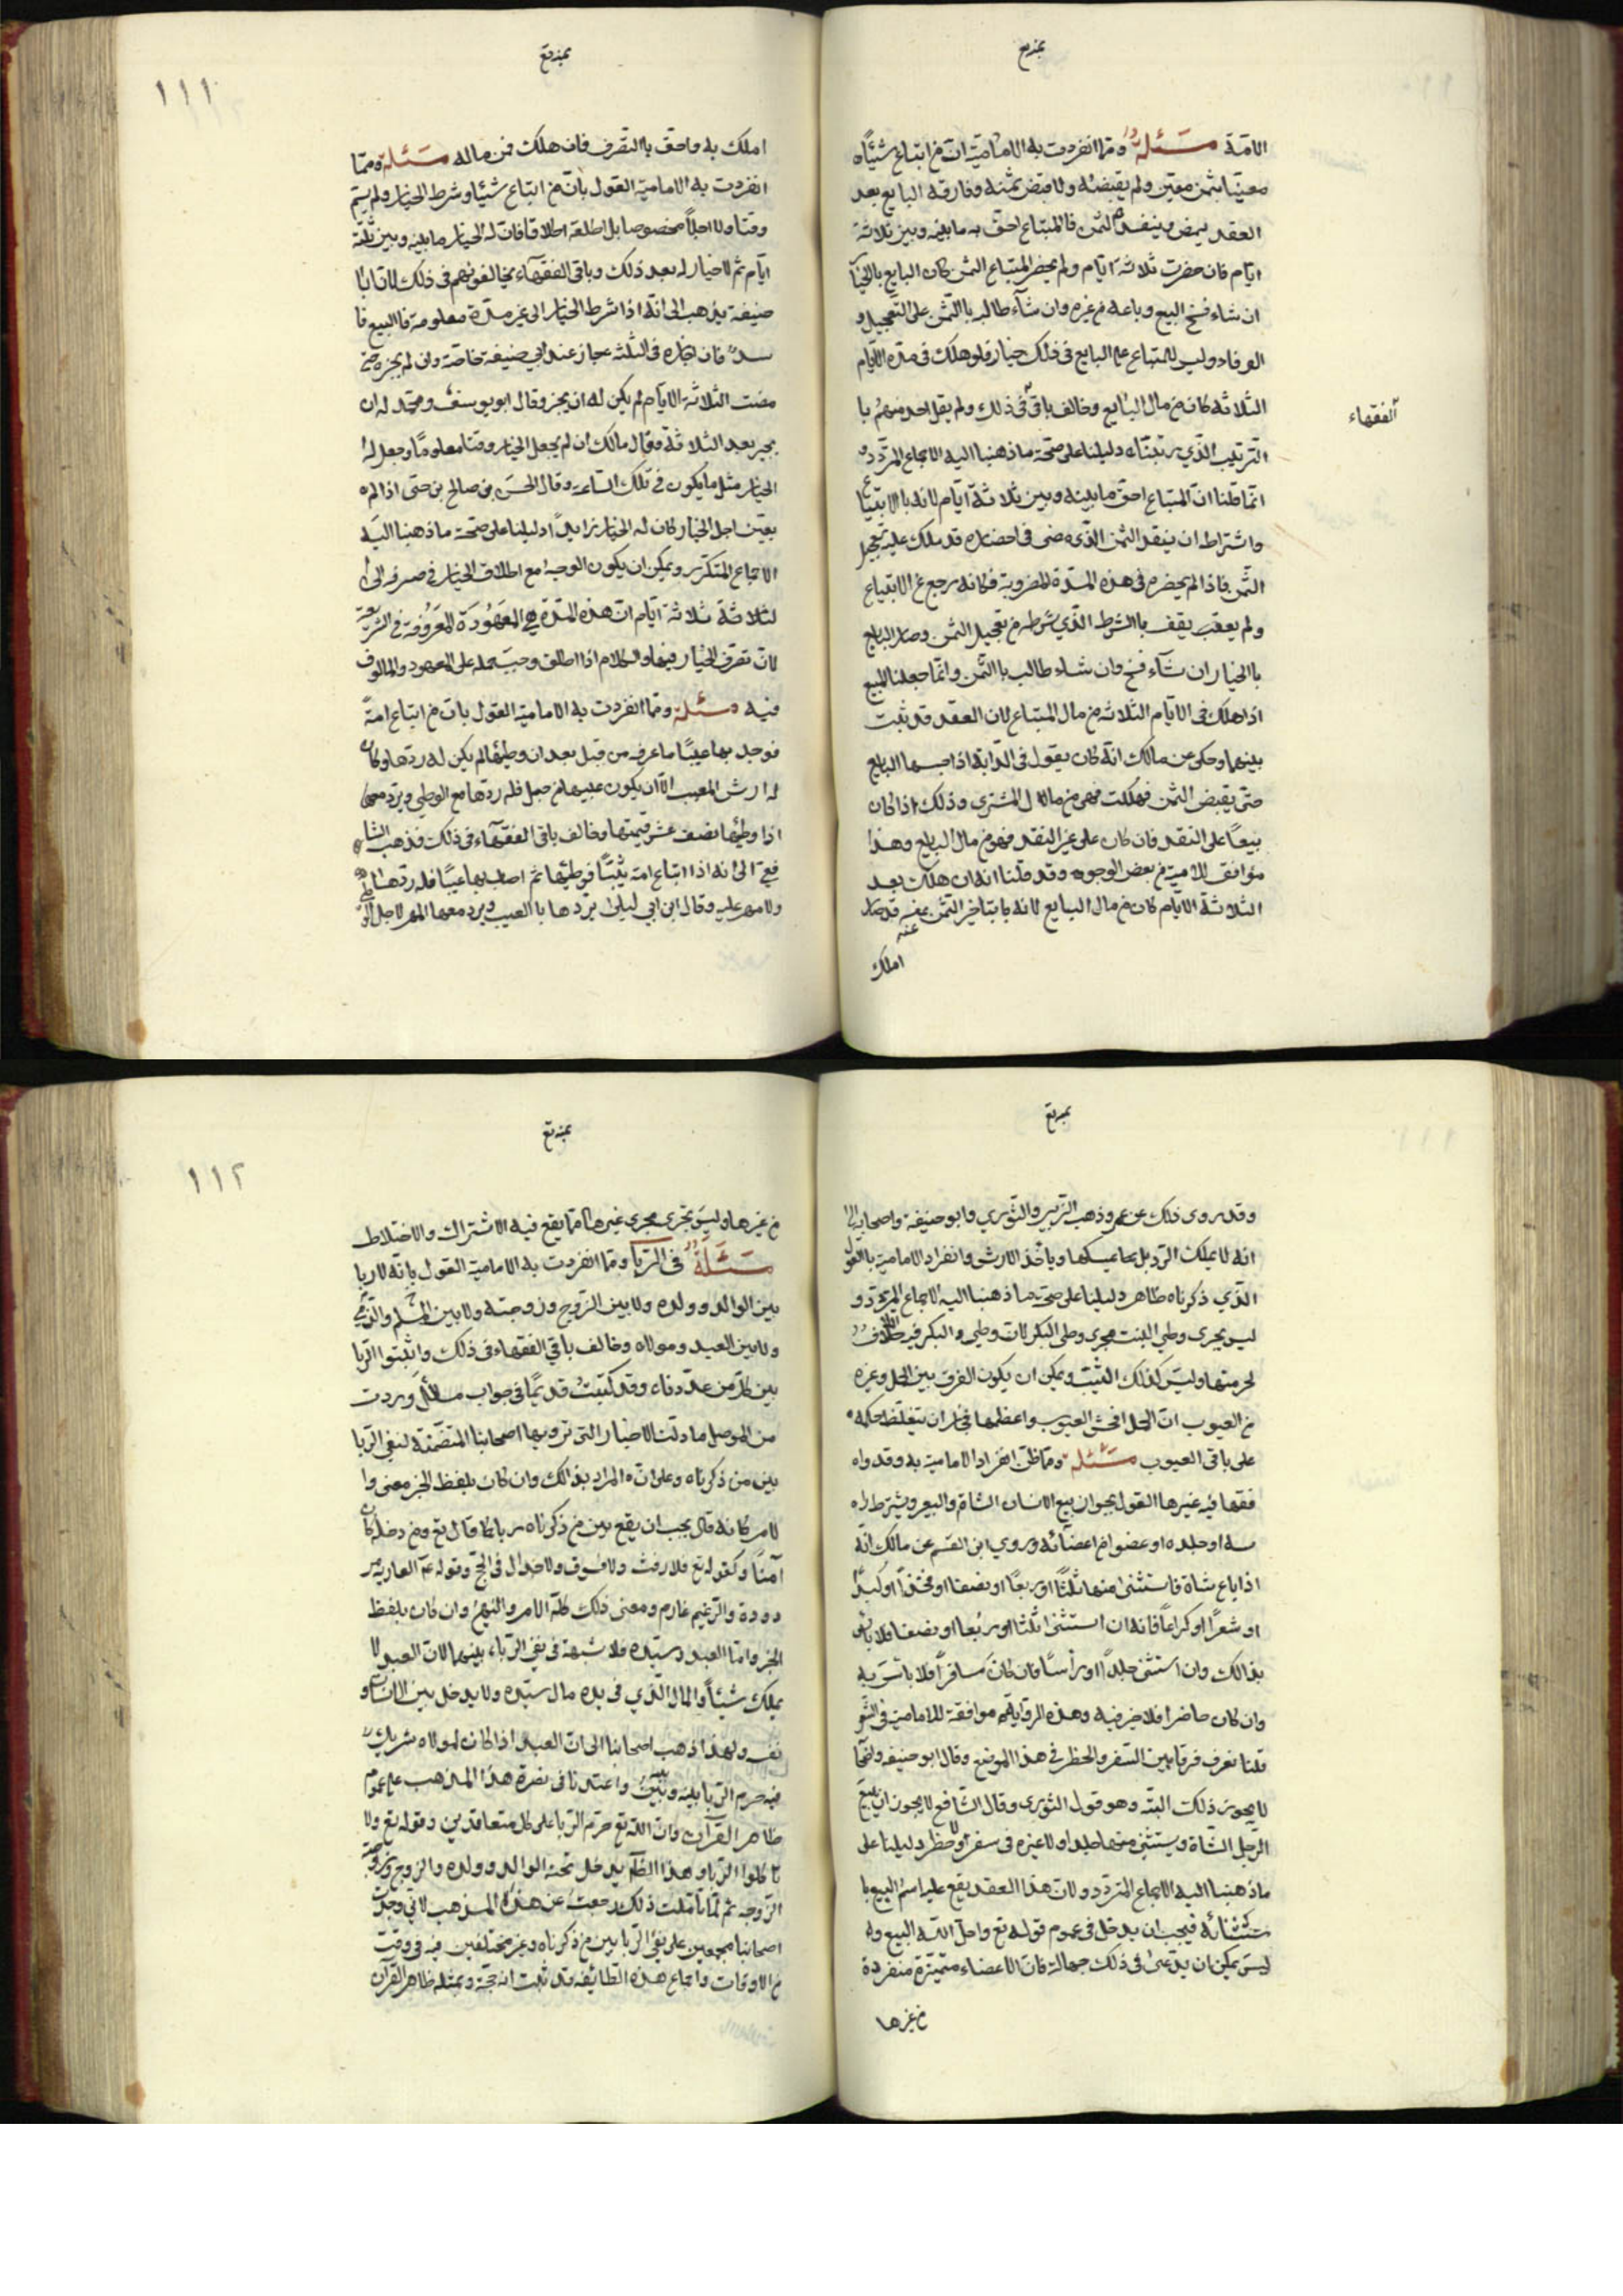 الامة مسئلة ومما انفردت به الامامية ان من ابتاع شيئاه
معينا بثمن معين ولم يقبضه ولا قبض ثمنه وفارقه البايع بعد
العقد ليمضي وينفد الثمن فالمبتاع احق به ما بينه وبين ثلاثة
ايام فان حضرت ثلاثة ايام ولم يحضر المبتاع الثمن كان البايع بالخيا
ان شاء فسخ البيع وباعه من غيره وان شاء طالبه باالثمن على التعجيل و
الوفاء وليس للمبتاع على البايع في ذلك خيار فلو هلك في مدة الايام
الثلاثة كان من مال البايع وخالف باقي في ذلك ولم يقل احد منهم با
الفقهاء
الترتيب الذي رتبناه دليلنا على صحة ما ذهبنا اليه الاجماع المتردد و
انما قلنا ان المبتاع احق ما بينه وبين ثلاثة ايام لانه باالابتيا
واشتراط ان ينقد الثمن الذي مضى في احضاره قد ملك عليه تعجيل
الثمن فاذا لم يحضره في هذه المدة المضروبة فكانه رجع عن الابتياع
ولم يعقب يقف باالشرط الذي شرطه من تعجيل الثمن وصار البايع
باالخيار ان شآء فسخ وان شاء طالب باالثمن وانما جعلنا المبيع
اذا هلك في الايام الثلاثة من مال المبتاع لان العقد قد ثبت
بينهما وحكى عن مالك انه كان يقول في الدابة اذا حبسها البايع
حتى يقبض الثمن فهلكت فهى من مال المشتري وذلك اذا كان
بيعا على النقد فان كان على غير النقد فهو من مال البايع وهذا
موافق للامامية من بعض الوجوه وقد قلنا انه ان هلك بعد
الثلاثة الايام كان من مال البايع لانه بتاخير الثمن عنه قد صار
عنه
املك
١١١
املك به واحق باالتصرف فان هلك فمن ماله مسئلة ومما
انفردت به الامامية القول بان من ابتاع شيئا وشرط الخيار ولم يسم
وقتا ولا اجلا مخصوصا بل اطلقه اطلاقا فان له الخيار ما بينه وبين ثلثة
ايام ثم لا خيار له بعد ذلك وباقي الفقهاء يخالفونهم في ذلك لان ابا
حنيفة يذهب الى انه اذا شرط الخيار الى غير مدة معلومة فاالبيع فا
سد فان اجازه في الثلثة جاز عند ابي حنيفة خاصة وان لم يجزه حتى
مضت الثلاثة الايام لم يكن له ان يجيز وقال ابو يوسف ومحمد له ان
يجيز بعد الثلاثة وقال مالك ان لم يجعل الخيار وقتا معلوما وجعل له
الخيار مثل ما يكون في تلك الساعة وقال الحسن بن صالح بن حتى اذا لم ه
يعين اجل الخيار كان له الخيار ابدا دليلنا على صحة ما ذهبنا اليه
الاجماع المتكرر ويمكن ان يكون الوجه مع اطلاق الخيار في صرفه الى ا
لثلاثة ثلاثة ايام ان هذه المدة هي المعهودة المعروفة في الشريعة
لان تصرف الخيار فيها والكلام اذا اطلق وجب حمله على المعهود والمالوف
فيه مسئلة ومما انفردت به الامامية القول بان من ابتاع امة
فوجد بها عيبا ما عرفه من قبل بعد ان وطيها لم يكن له ردها وكان
له ارش المعيب الا ان يكون عيبها من حبل فله ردها مع الوطي ويرد معها
اذا وطيها نصف عشر قيمتها وخالف باقي الفقهاء في ذلك فذهب الشا
فعي الى انه اذا ابتاع امة ثيبا فوطيها ثم اصاب بها عيبا فله ردها
ولا مهر عليه وقال ابن ابي ليلى يردها باالعيب ويرد معها المهر لاجل الو
وقد روى ذلك عن عمر وذهب الزبير والثوري وابو حنيفة واصحابه الى
انه لا يملك الرد بل بها يمسكها وياخذ الارش وانفراد الامامية باالقول
الذي ذكرناه ظاهر دليلنا على صحة ما ذهبنا اليه الاجماع المتردد و
ليس يجري وطي البنت مجرى وطي البكر لان وطي البكر فيه
لحرمتها وليس كذلك الثيب ويمكن ان يكون الفرق بين الحبل وغيره
من العيوب ان الحمل افحش العيوب واعظمها فجاز ان يتغلظ حكمه ه
على باقي العيوب مسئلة ومما ظن انفراد الامامية به وقد واه
فقها فيه غيرها القول بجواز بيع الانسان الشاة والبعير ويشترط راه
سه او جلده او عضوا من اعضائه وروي ابن القسم عن مالك انه
اذا باع شاة فاستثنى منها ثلثا او ربعا او نصفا او فخذا او كبدا
او شعرا او كراعا فانه ان استثنى ثلثا او ربعا او نصفا فلا باس
بذالك وان استثنى جلدا او رأسا فان كان مسافرا فلا باس به
وان كان حاضرا فلا خير فيه وهذه الرواية موافقة للامامية
قلنا نعرف فرقا بين السفر والحظر في هذا الموضع وقال ابو حنيفه
لا يجوز ذلك البته وهو قول الثوري وقال الشافع لا يجوز ان يبيع
الرجل الشاة ويستثنى منها جلدا ولا غيره في سفر ولا حظر دليلنا على
ما ذهبنا اليه الاجماع المتردد ولان هذا العقد يقع عليه اسم البيع با
ستثنائه فيجب ان يدخل في عموم قوله تع واحل الله البيع وه
ليس يمكن ان يدعى في ذلك جهالة فان الاعضاء متميزة منفردة
من غيرها
١١٢
من غيرها وليس تجري مجرى غيرها مما يقع فيه الاشتراك والاختلاط
مسئلة في الربا ومما انفردت به الامامية القول بانه لا ربا
بين الوالد وولده ولا بين الزوج وزوجته ولا بين المسلم والذمي
ولا بين العبد ومولاه وخالف باقي الفقهاء في ذلك واثبتوا الربا
بين كل من عددناه وقد كتبت قديما في جواب مسائل وردت
من الموصل ما دلت الاخبار التى ترويها اصحابنا المتضمنة لنفي الربا
بين من ذكرناه وعلى ان المراد بذالك وان كان بلفظ الخبر معنى وا
لامر كانه قال يجب ان يقع بين من ذكرناه ربا كما قال تع ومن دخله كان
آمنا وكقوله تع فلا رفث ولا فسوق ولا جدال في الحج وقوله عم العارية مر
دودة والزعيم غارم ومعنى ذلك كله الامر والنهى وان كان بلفظ
الخبر واما العبد وسيده فلا شبهة في نفي الرباء بينهما لان العبد لا
يملك شيئا والمال الذي في يده مال سيده ولا يدخل بين الانسان و
نفسه ولهذا ذهب اصحابنا الى ان العبد اذا كان لمولاه شريك
فيه حرم الربا بينه وبينه واعتمدنا في نصرة هذا المذهب على عموم
ظاهر القرآن وان الله تع حرم الربا على كل متعاقدين وقوله تع ولا
تاكلوا الربا وهذا الظاهر يدخل تحته الوالد وولده والزوج وزوجة
الزوجه ثم لما تاملت ذلك رجعت عن هذه المذهب لاني وجدت
اصحابنا مجمعين على نفي الربا بين من ذكرناه وغير مختلفين فيه في وقت
من الاوقات واجماع هذه الطائفه قد ثبت انه حجة وبمثله ظاهر القرآن